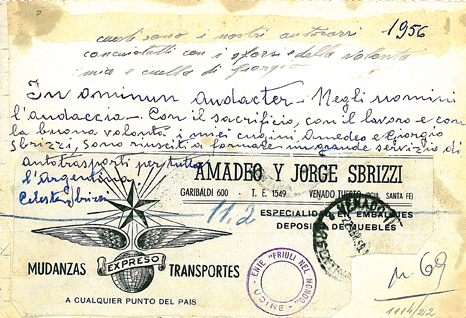 1956
questi sono i nostri autocarri
conquistati con i sforzi e della volonta
mia e quella di Giorgio
In ominun audacter - Negli uomini
l'audacia - Con il sacrificio, con il lavoro e con
la buona volontà i miei cugini Amedeo e Giorgio
Sbrizzi, sono riusciti a formare un grande servizio di
autotrasporti per tutta
l'Argentina
Celeste Sbrizzi
AMADEO Y JORGE SBRIZZI
GARIBALDI 600 - T. E. 1549 VENADO TUERTO (PCIA. SANTA FE)
11.2
ESPECIALIDAD EN EMBALAJES
DEPOSITO DE MUEBLES
MUDANZAS EXPRESO TRANSPORTES
A CUALQUIER PUNTO DEL PAIS
ENTE "FRIULI NEL MONDO"
UDINE
VENADO
n 69
1114/22